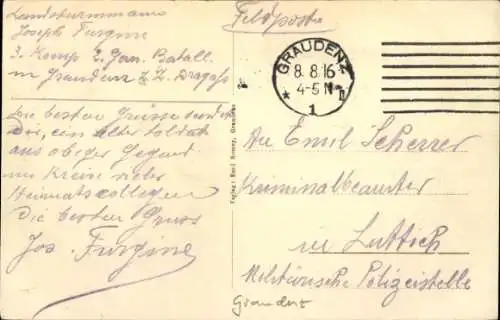 Landsturmmann
Joseph Furgme
3. Komp 2. Gar. Batall.
in Graudenz z. Z. Dragaß
Die besten Grüsse sendet
Dir, ein alter Soldat
aus obiger Gegend
im Kreise vieler
Heimatscollegen
Die besten Gruss
Jos. Furgme
Feldpost
GRAUDENZ
8.8.16
4-5 N
1
An Emil Scherrer
Kriminalbeamter
in Lüttich
Militärische Polizeistelle
Graudenz